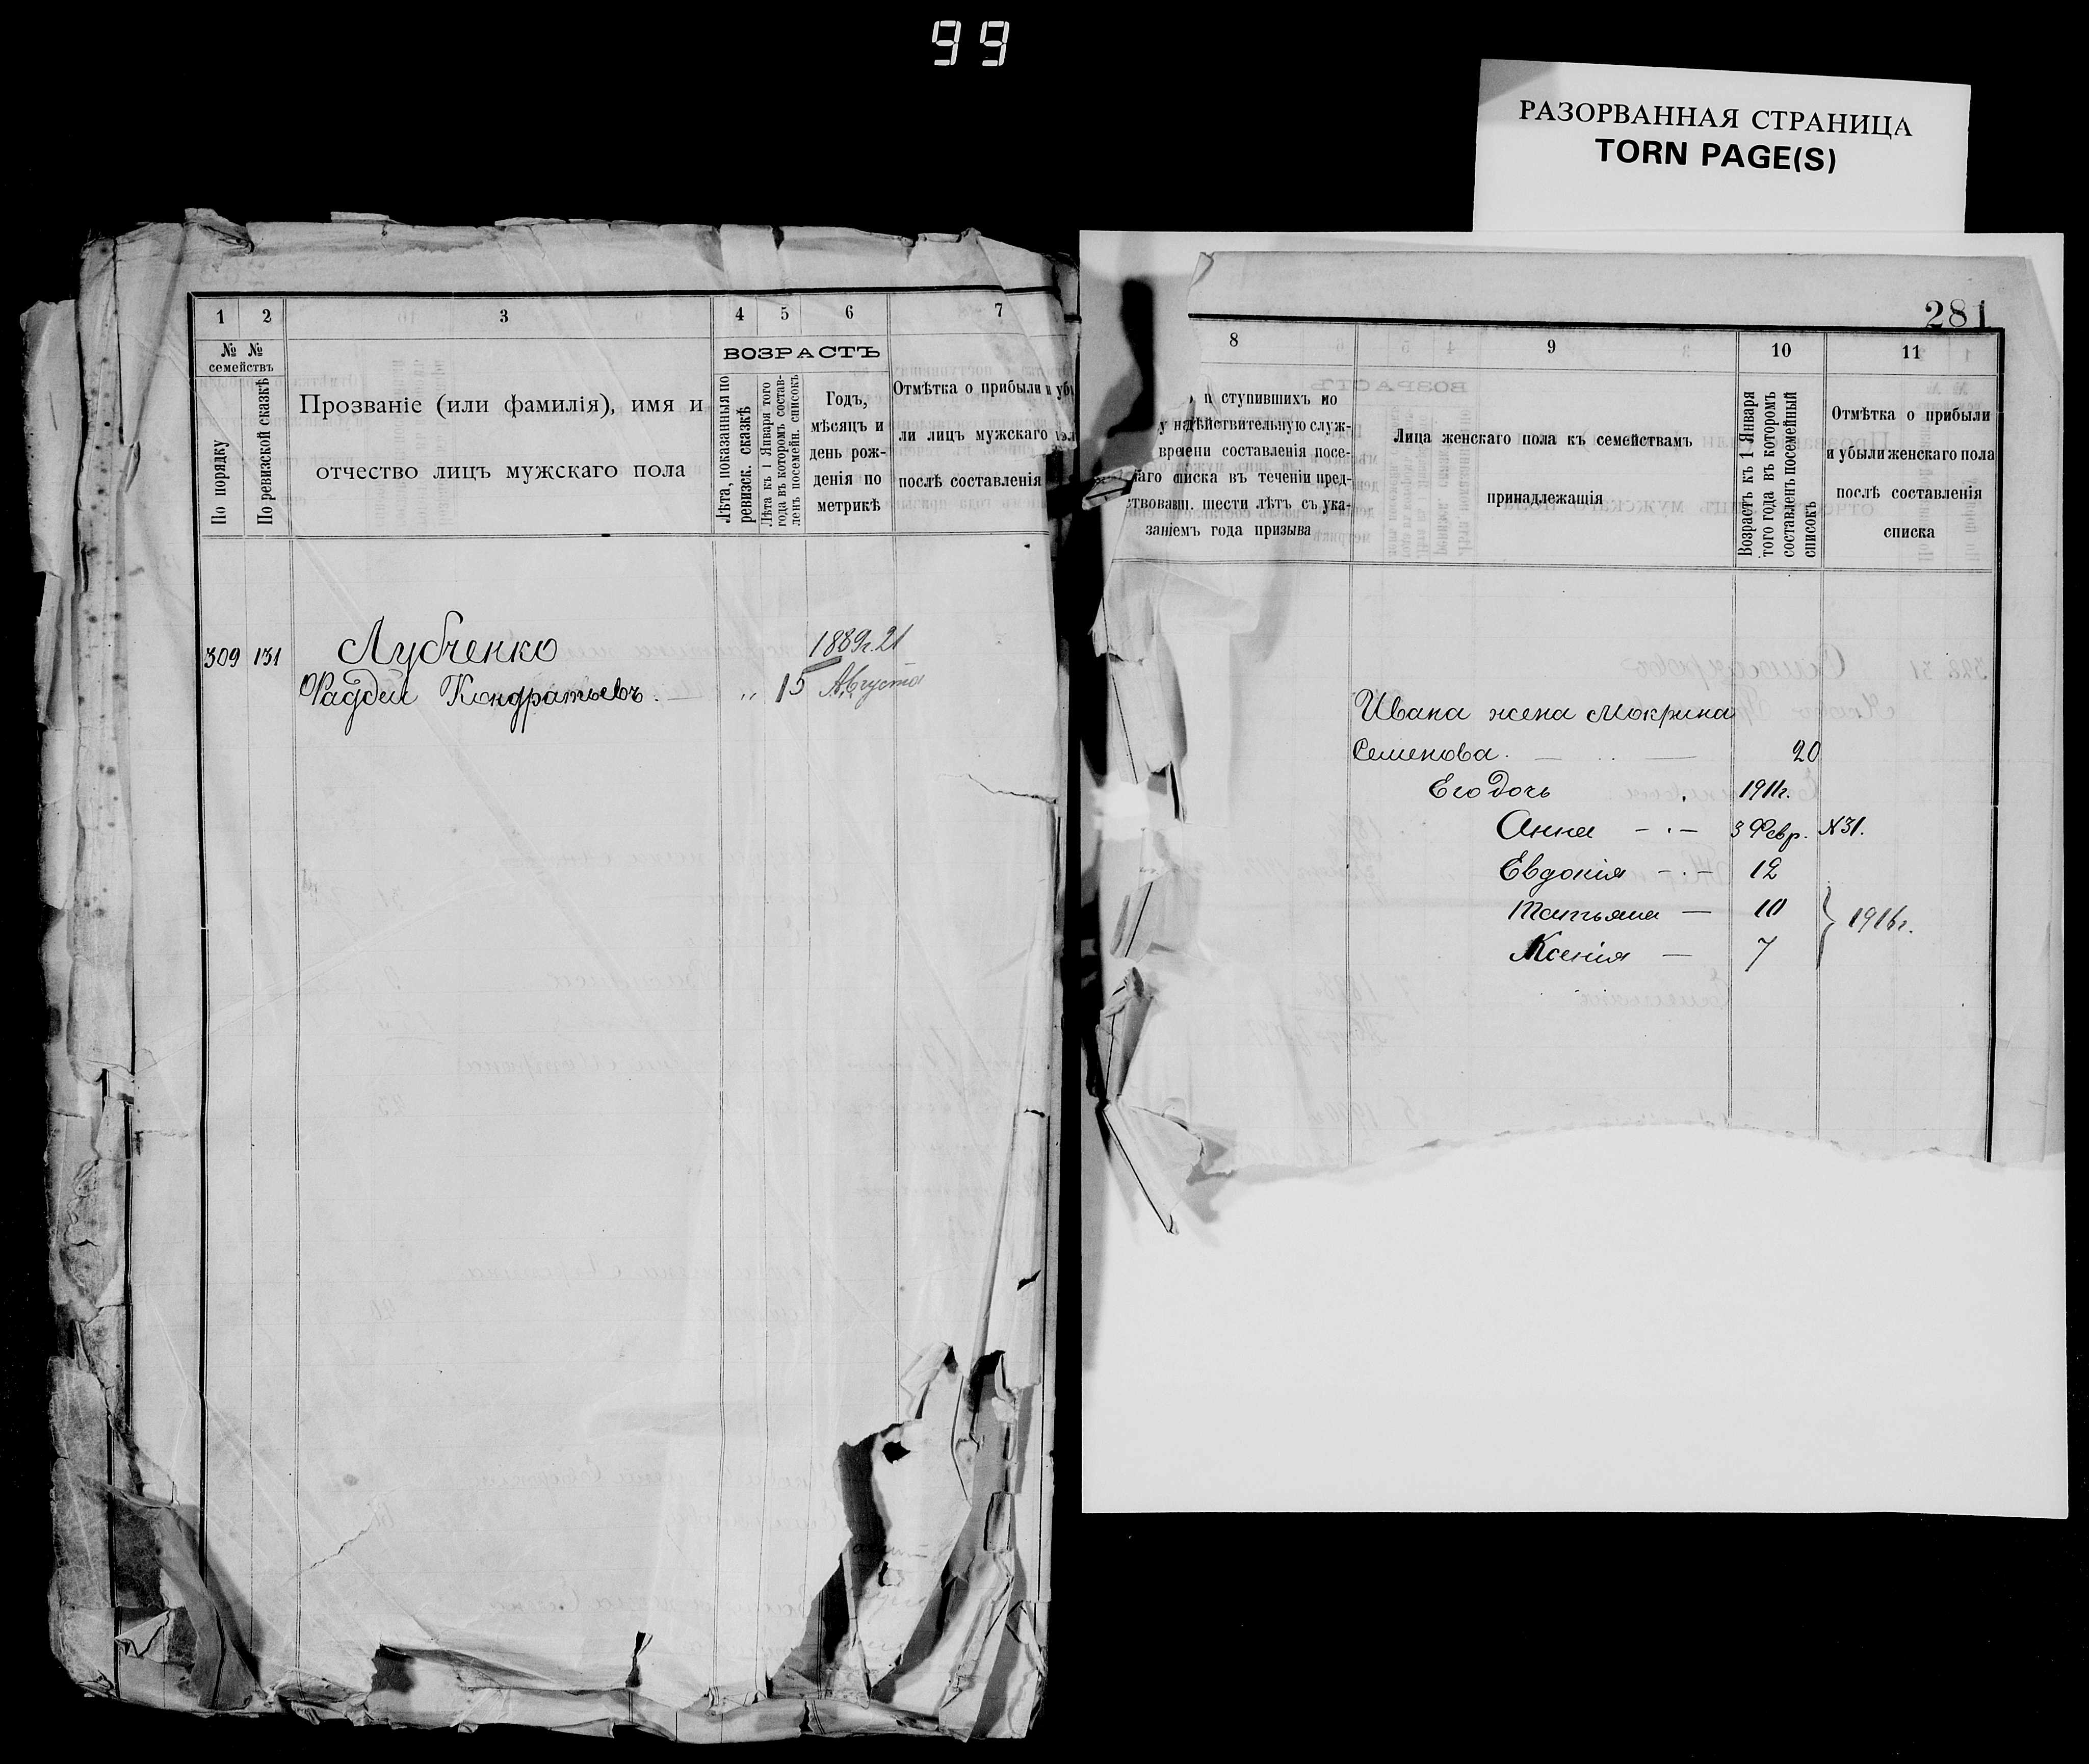 99
РАЗОРВАННАЯ СТРАНИЦА
TORN PAGE(S)
1 2 3 4 5 6 7
№ №
семействъ
По порядку
По ревизской сказкѣ
Прозваніе (или фамилія), имя и
отчество лицъ мужскаго пола
ВОЗРАСТЪ
Лѣта, показанныя по
ревизск. сказкѣ
Лѣта къ 1 Января того
года въ которомъ состав-
ленъ посемейн. списокъ
Годъ,
мѣсяцъ и
день рож-
денія по
метрикѣ
Отмѣтка о прибыли и
ли лицъ мужскаго
послѣ составленія
309 131 Лубченко 1889г. 21
Фадей Кондратьевъ. — „ 15 Августа
281
8 9 10 11
ступившихъ по
дѣйствительную служ-
времени составленія посе-
списка въ теченіи пред-
ствовавш. шести лѣтъ съ ука-
заніемъ года призыва
Лица женскаго пола къ семействамъ
принадлежащія
Возрастъ къ 1 Января
того года въ которомъ
составленъ посемейный
списокъ
Отмѣтка о прибыли
и убыли женскаго пола
послѣ составленія
списка
Ивана жена Мокрина
Семенова. 20
Его дочь 1911г.
Анна 3 Февр. №31.
Евдокія 12
Татьяна — 10
Ксенія — 7
} 1916г.